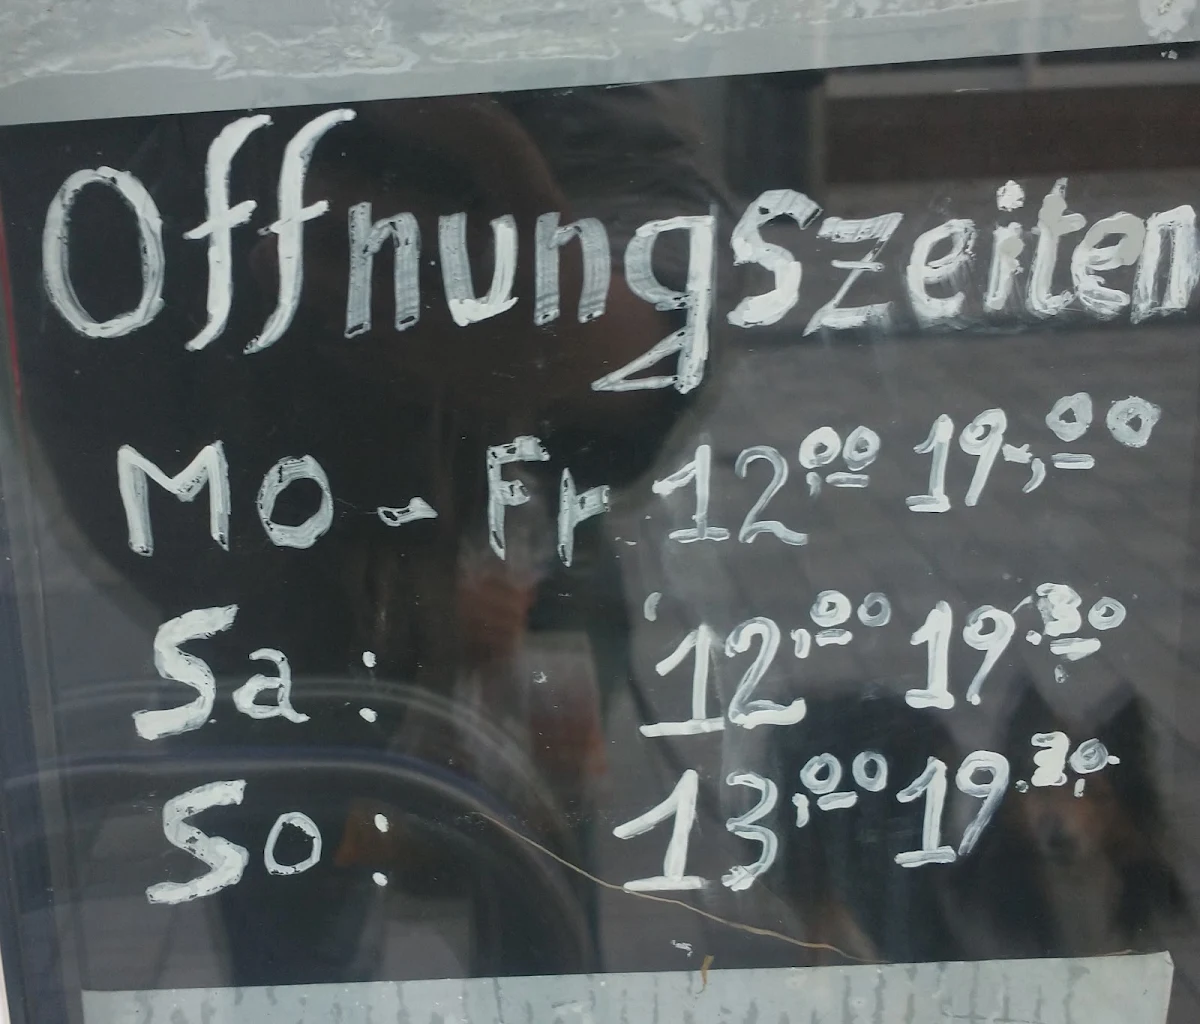 Offnungszeiten
MO - Fr 12,00 19,00
Sa: 12,00 19.30
So: 13,00 19.30